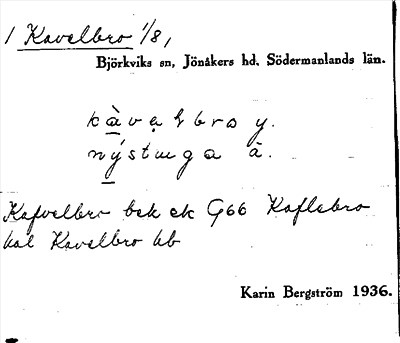 1 Kavelbro 1/8,
Björkviks sn, Jönåkers hd, Södermanlands län.
kàvalbro y.
nýstuga ä.
Kafvelbro bek ek G66 Kaflebro
hal Kavelbro hb
Karin Bergström 1936.